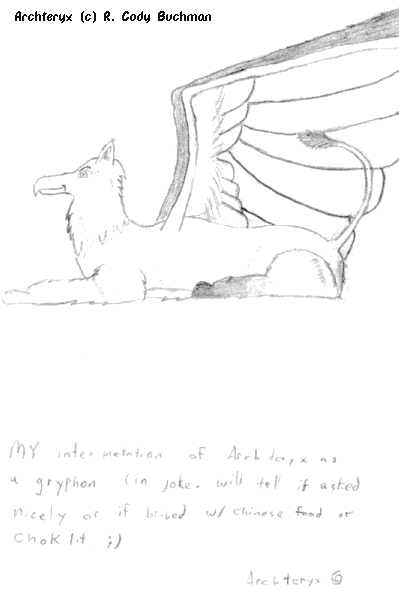 Archteryx (c) R. Cody Buchman
MY interpretation of Archteryx as
a gryphon (in joke. will tell if asked
nicely or if bribed w/ chinese food or
choklit ;)
Archteryx ©